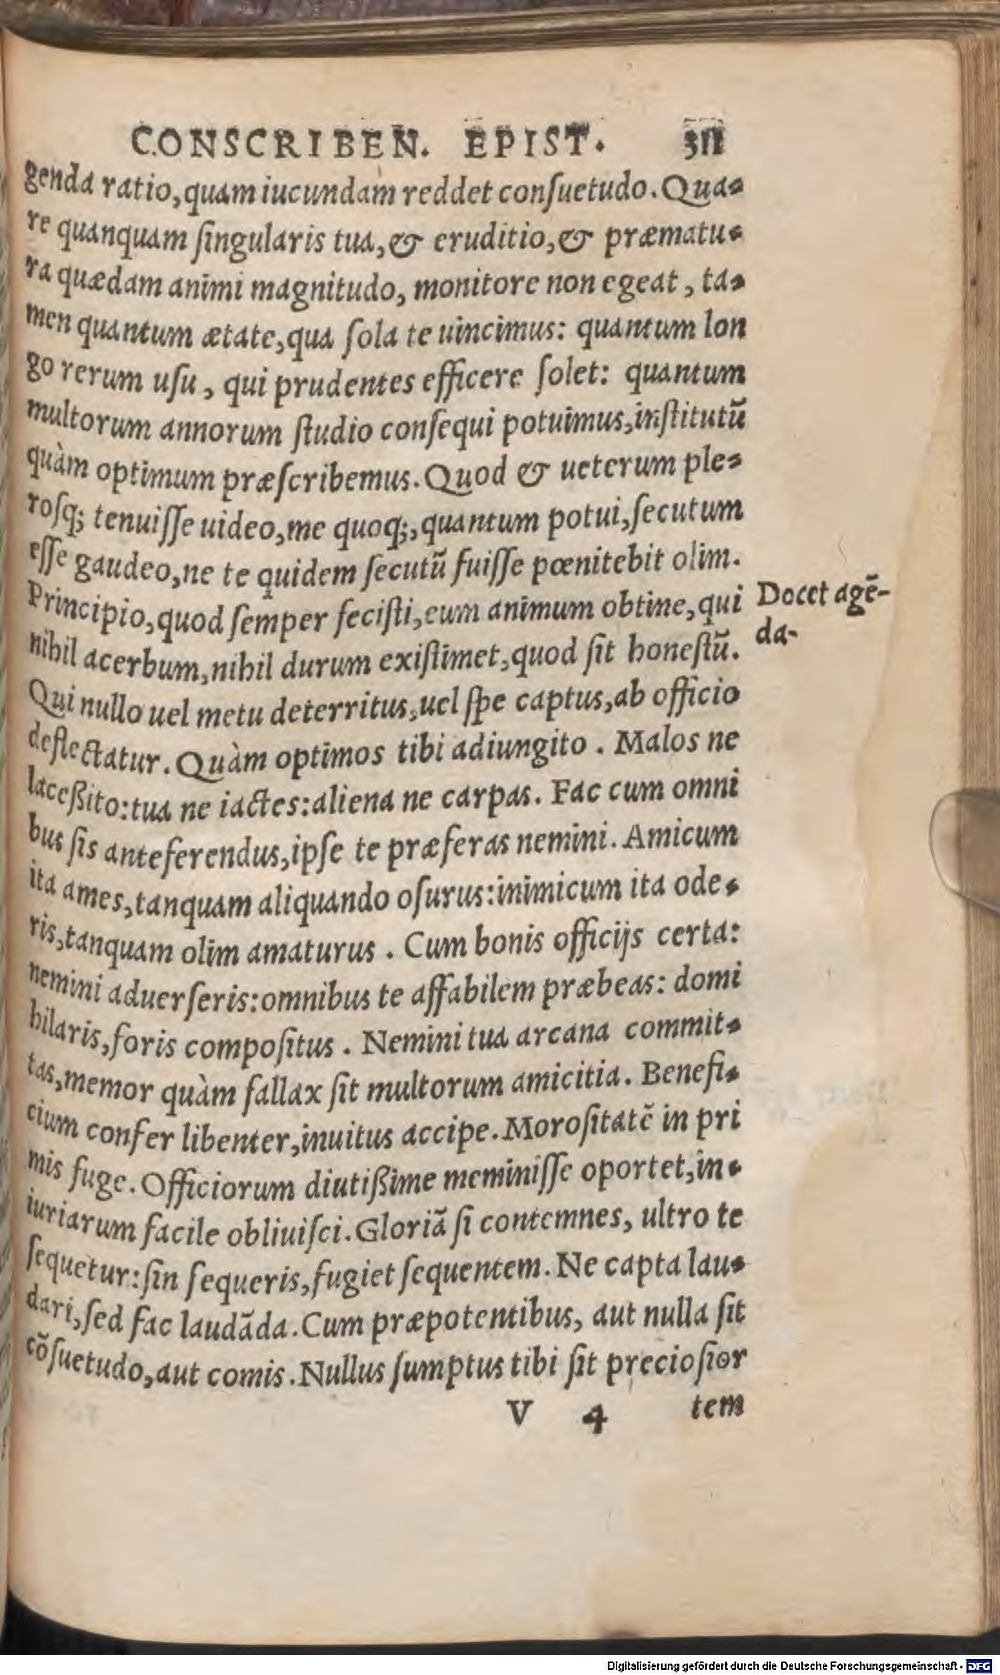 CONSCRIBEN. EPIST. 311
genda ratio, quam iucundam reddet conſuetudo. Qua-
re quanquam ſingularis tua, & eruditio, & præmatu-
ra quædam animi magnitudo, monitore non egeat, ta-
men quantum ætate, qua ſola te uincimus: quantum lon
go rerum uſu, qui prudentes efficere ſolet: quantum
multorum annorum ſtudio conſequi potuimus, inſtitutū
quàm optimum præſcribemus. Quod & ueterum ple-
roſq; tenuiſſe uideo, me quoq;, quantum potui, ſecutum
eſſe gaudeo, ne te quidem ſecutū fuiſſe pœnitebit olim.
Principio, quod ſemper feciſti, eum animum obtine, qui
nihil acerbum, nihil durum exiſtimet, quod ſit honeſtū.
Qui nullo uel metu deterritus, uel ſpe captus, ab officio
deflectatur. Quàm optimos tibi adiungito. Malos ne
laceßito: tua ne iactes: aliena ne carpas. Fac cum omni
bus ſis anteferendus, ipſe te præferas nemini. Amicum
ita ames, tanquam aliquando oſurus: inimicum ita ode-
ris, tanquam olim amaturus. Cum bonis officijs certa:
nemini aduerſeris: omnibus te affabilem præbeas: domi
hilaris, foris compoſitus. Nemini tua arcana commit-
tas, memor quàm fallax ſit multorum amicitia. Benefi-
cium confer libenter, inuitus accipe. Moroſitatē in pri
mis fuge. Officiorum diutißime meminiſſe oportet, in-
iuriarum facile obliuiſci. Gloriā ſi contemnes, ultro te
ſequetur: ſin ſequeris, fugiet ſequentem. Ne capta lau-
dari, ſed fac laudāda. Cum præpotentibus, aut nulla ſit
cōſuetudo, aut comis. Nullus ſumptus tibi ſit precioſior
V 4 tem
Docet agē-
da-
Digitalisierung gefördert durch die Deutsche Forschungsgemeinschaft - DFG